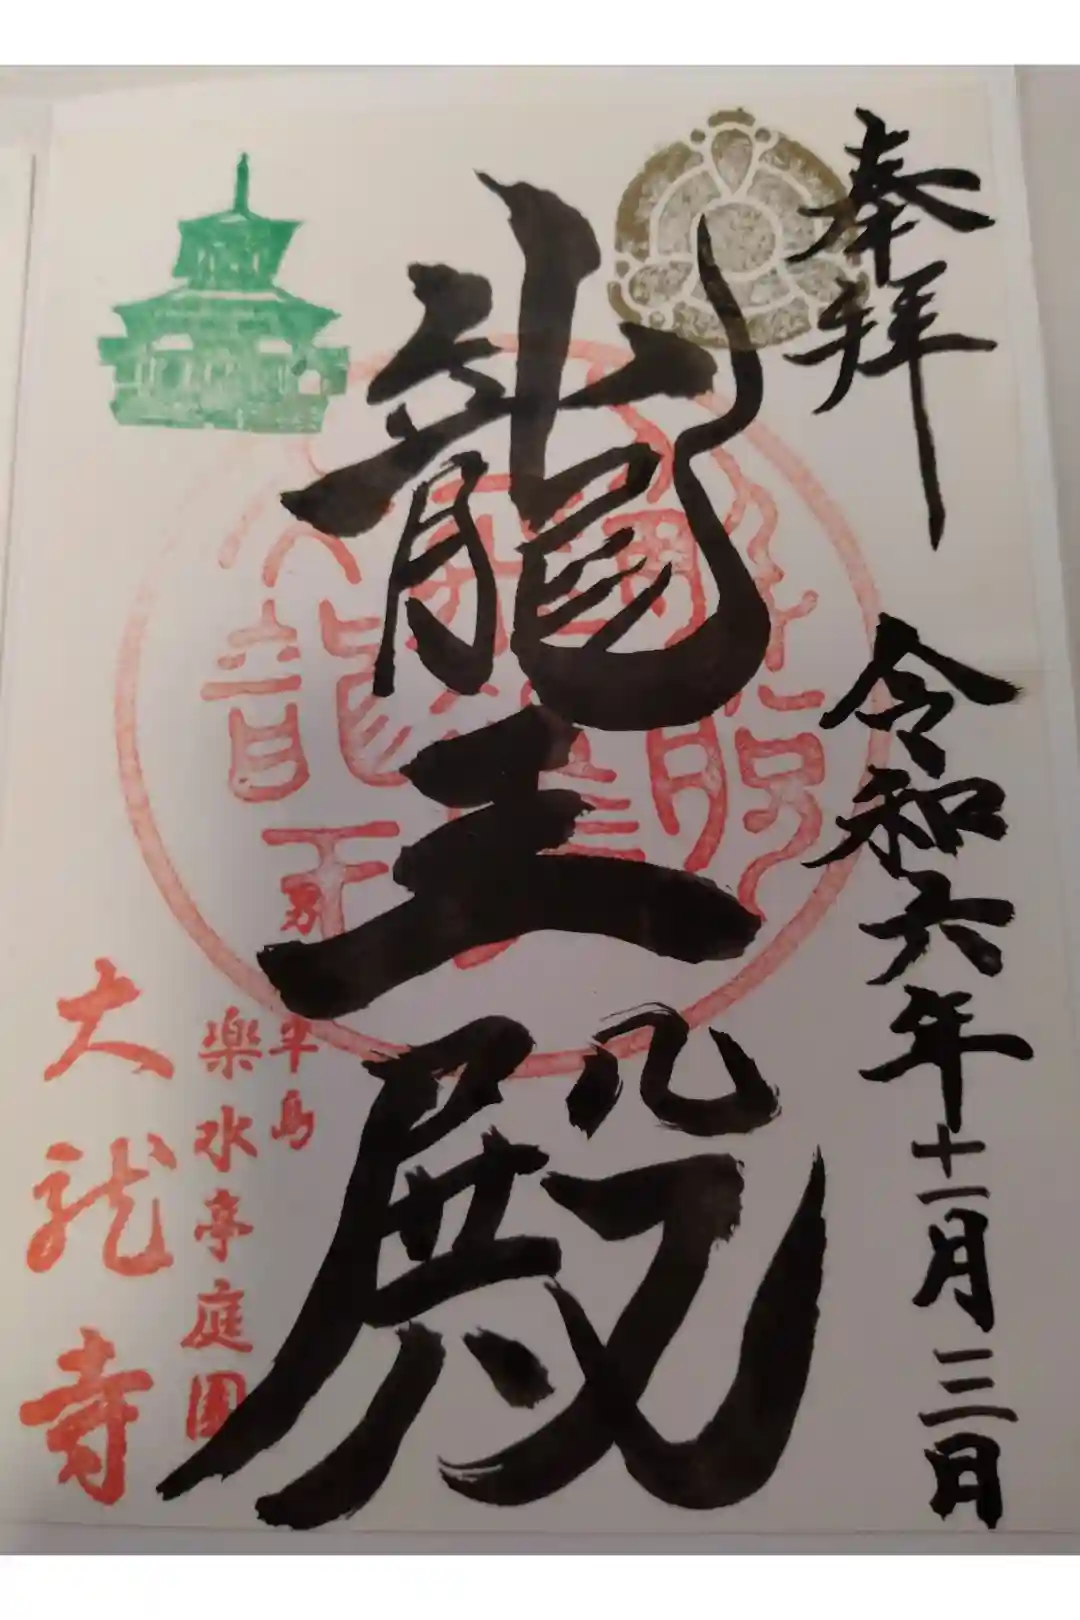 奉拝
令和六年十一月三日
龍王殿
男鹿半島
楽水亭庭園
大龍寺